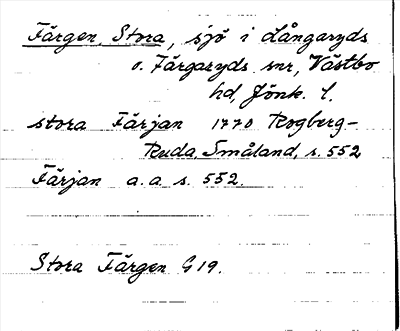 Färgen, Stora, sjö i Långaryds
o. Färgaryds snr, Västbo
hd, Jönk. l.
stora Färjan 1770 Rogberg-
Ruda, Småland, s. 552
Färjan a. a. s. 552.
Stora Färgen G19.